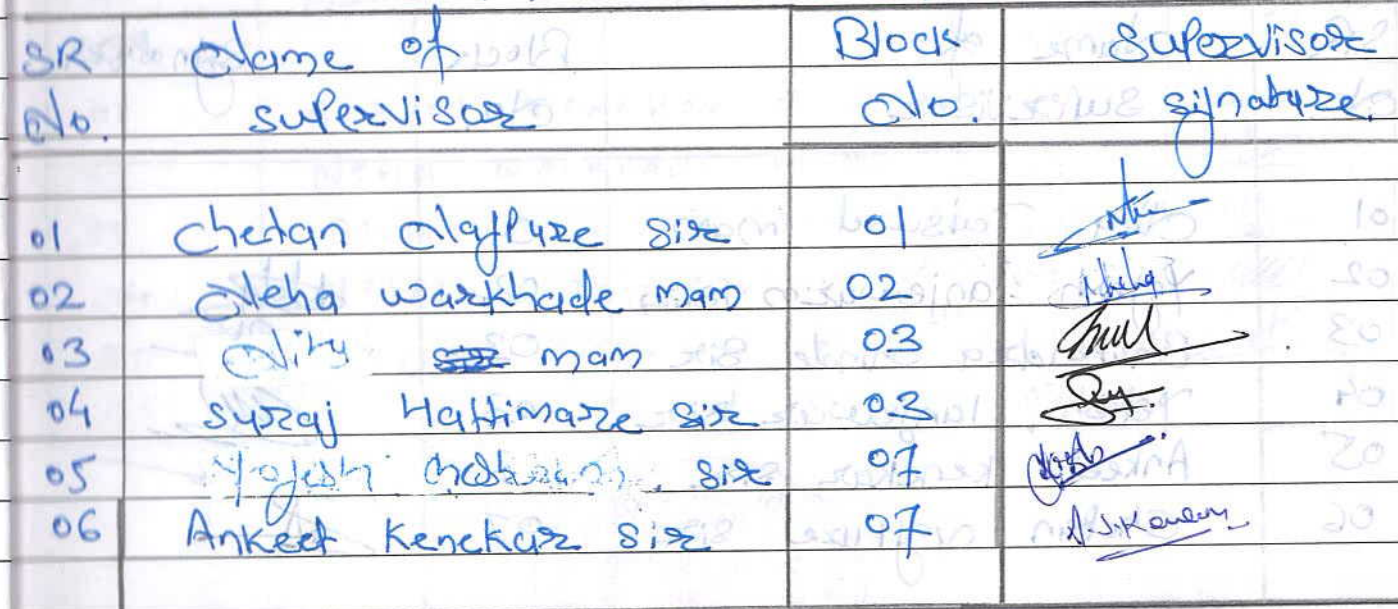 SR Name of Block Supervisor
No. supervisor No. signature.
01 Chetan Nagpure sir 01
02 Neha warkhade mam 02 Neha
03 mam 03
04 suraj Hattimare sir 03
05 Yogesh sir 07
06 Ankeet Kenekar sir 07